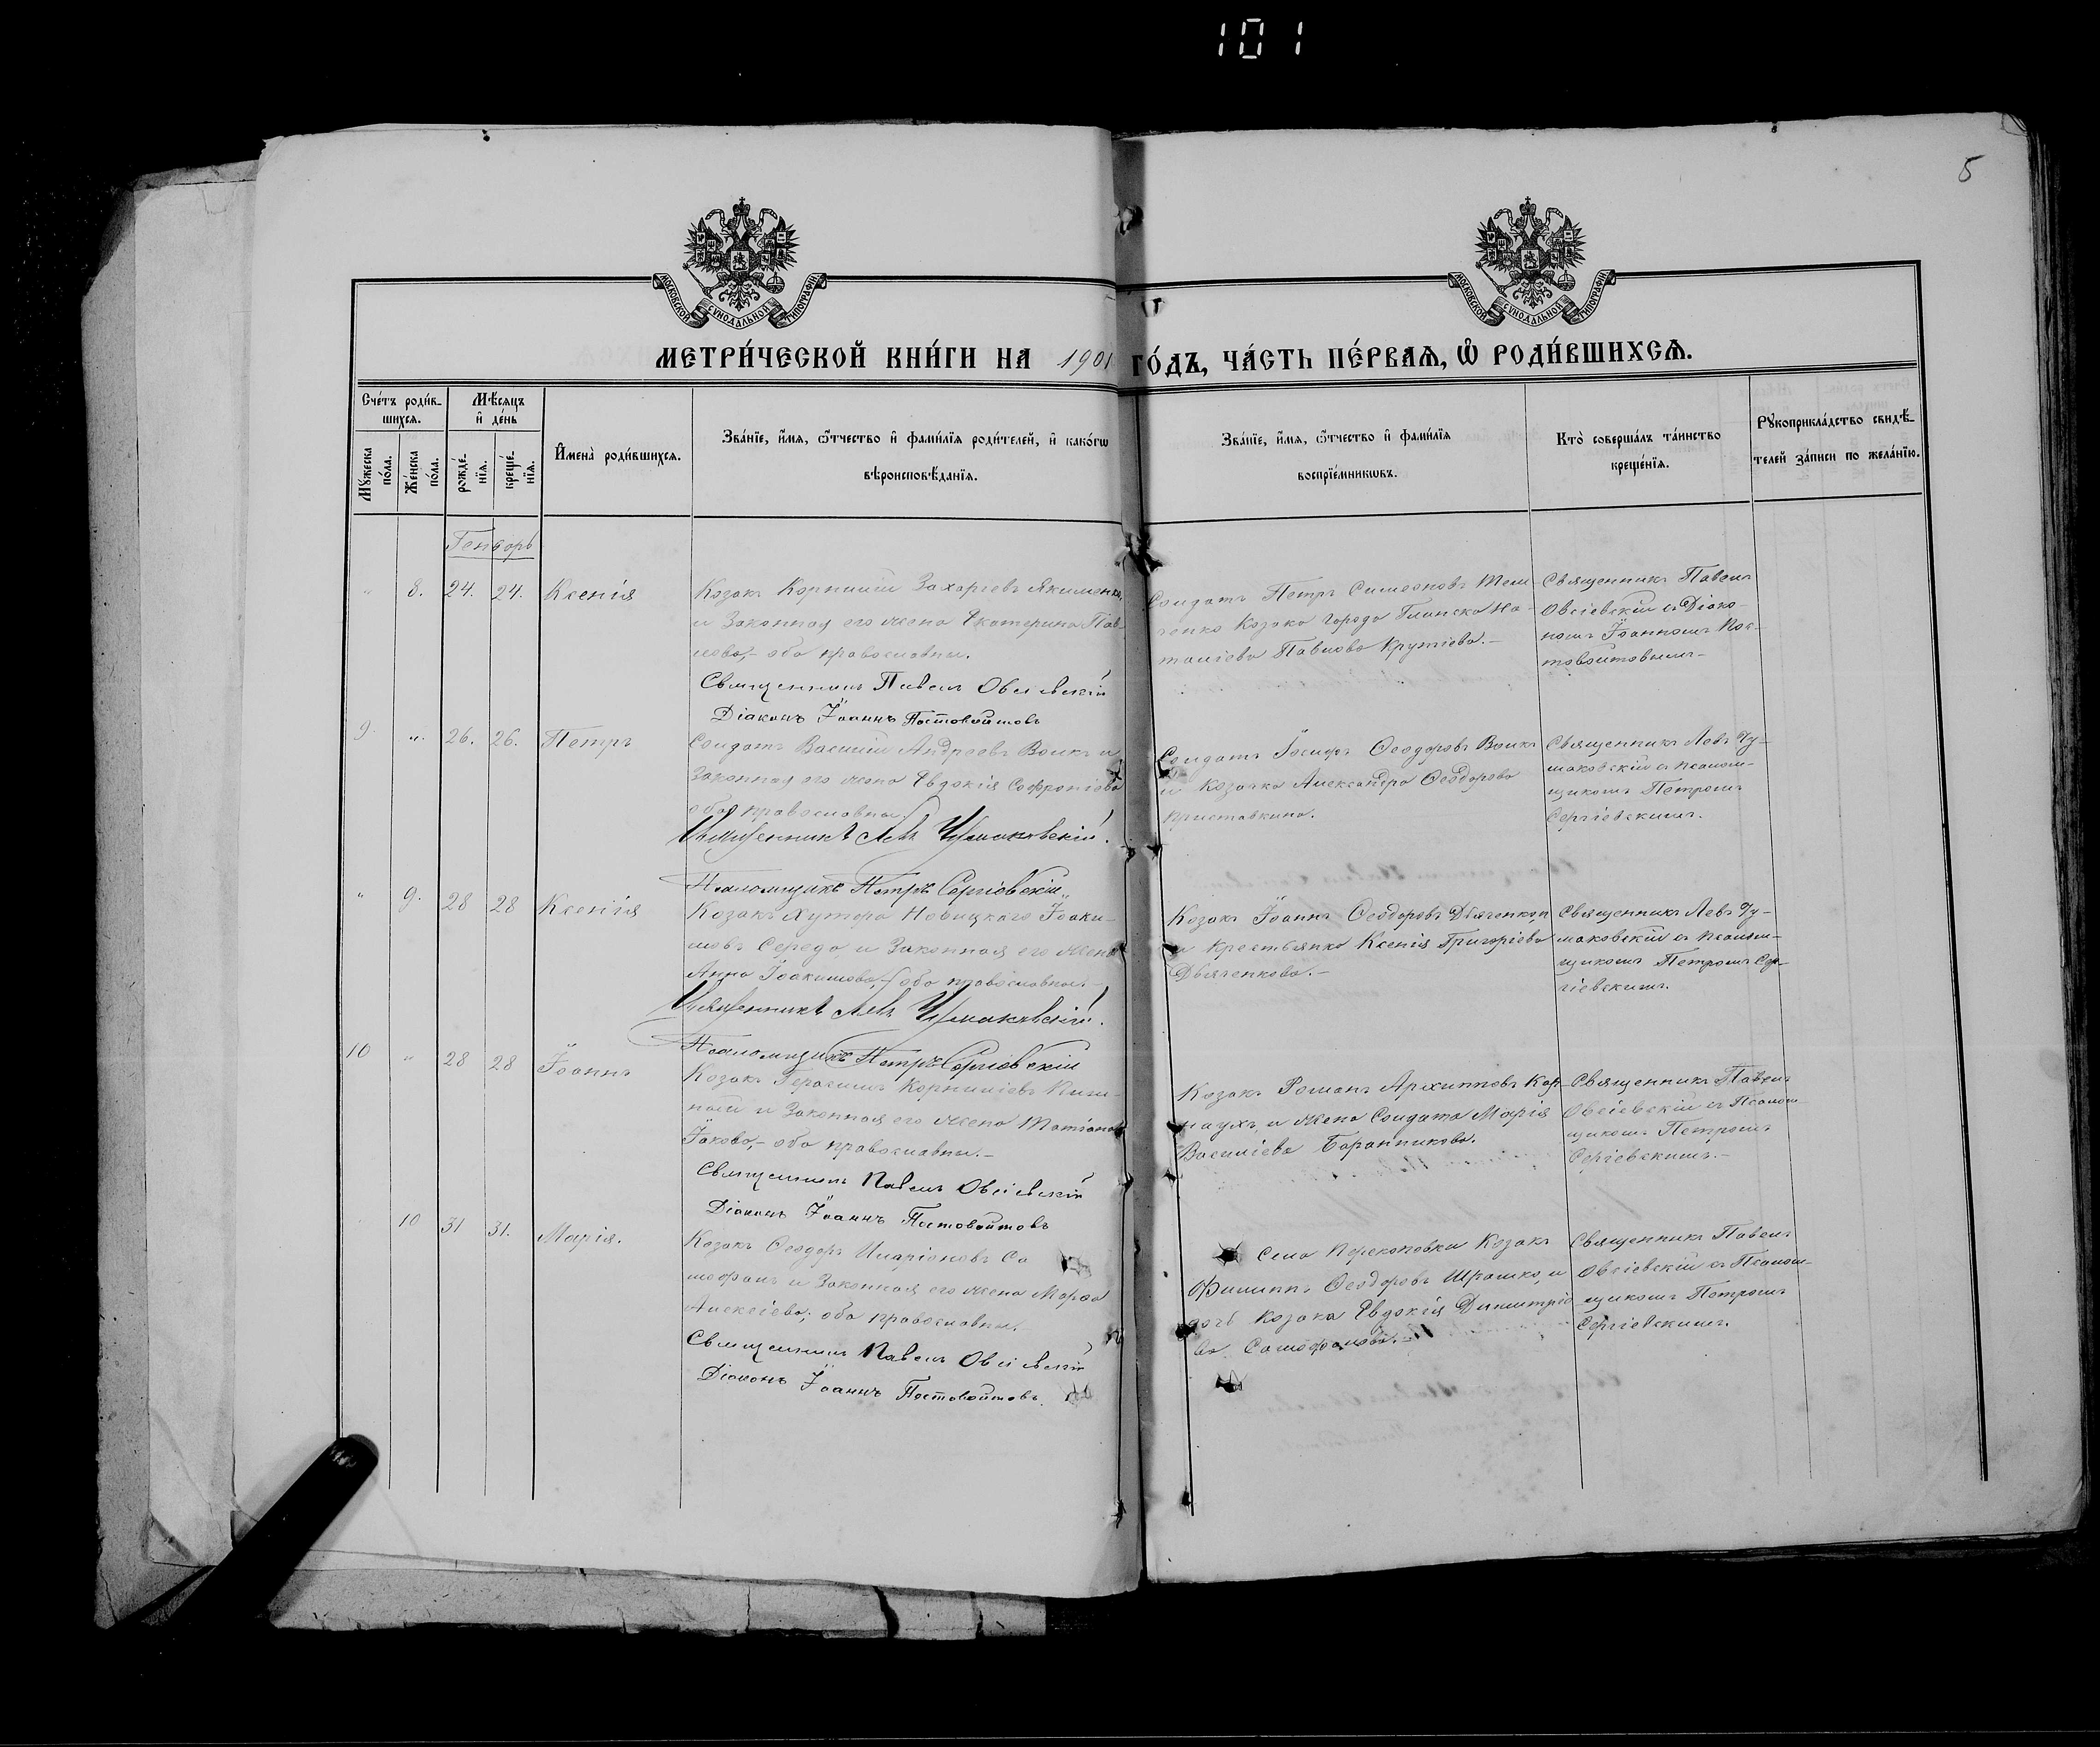 101
5
МОСКОВСКОЙ СѴНОДАЛЬНОЙ ТИПОГРАФІИ
МОСКОВСКОЙ СѴНОДАЛЬНОЙ ТИПОГРАФІИ
МЕТРИ́ЧЕСКОЙ КНИ́ГИ НА 1901 ГО́ДЪ, ЧА́СТЬ ПЕ́РВАѦ, Ѽ РОДИ́ВШИХСѦ.
Сче́тъ роди́в-
шихсѧ.
Мꙋ́жеска по́ла.
Же́нска по́ла.
Мѣ́сѧцъ
и҆ де́нь
рожде́-
нїѧ.
креще́-
нїѧ.
И҆мена̀ роди́вшихсѧ.
Зва́нїе, и҆́мѧ, ѻ҆́тчество и҆ фами́лїѧ роди́телей, и҆ како́гѡ
вѣроисповѣ́данїѧ.
Зва́нїе, и҆́мѧ, ѻ҆́тчество и҆ фами́лїѧ
воспрїе́мникѡвъ.
Кто̀ соверша́лъ та́инство
креще́нїѧ.
Рꙋкоприкла́дство свидѣ́-
телей за́писи по жела́нїю.
Генварь
" 8. 24. 24. Ксенія
Козакъ Корнилій Захаріевъ Якименко,
и Законная его жена Екатерина Пав-
лова,- оба православны.
Священникъ Павелъ Овсіевскій
Діаконъ Іоаннъ Постовойтовъ
Солдатъ Петръ Симеоновъ
Козака города Глинска На-
таліева Павлова Крутіева.-
Священникъ Павелъ
Овсіевскій съ Діако-
номъ Іоанномъ Пос-
товойтовымъ-
9. " 26. 26. Петръ
Солдатъ Василій Андреевъ Волкъ и
Законная его жена Евдокія Софроніева
оба православны.
Священникъ Левъ Чумаковскій.
Псаломщикъ Петръ Сергіевскій
Солдатъ Іосифъ Ѳеодоровъ Волкъ
и Козачка Александра Ѳеодорова
Приставкина.
Священникъ Левъ Чу-
маковскій съ псалом-
щикомъ Петромъ
Сергіевскимъ.
" 9. 28 28 Ксенія
Козакъ Хутора Новицкаго Іоаки-
мовъ Середа, и Законная его жена
Анна Іоакимова,- оба православны.-
Священникъ Левъ Чумаковскій.
Псаломщикъ Петръ Сергіевскій
Козакъ Іоаннъ Ѳеодоровъ Дьяченко,
и крестьянка Ксенія Григоріева
Дьяченкова.-
Священникъ Левъ Чу-
маковскій съ псалом-
щикомъ Петромъ Сер-
гіевскимъ.
10 " 28 28 Іоаннъ
Козакъ Герасимъ Корниліевъ
и Законная его жена Татіана
Іакова,- оба православны.-
Священникъ Павелъ Овсіевскій
Діаконъ Іоаннъ Постовойтовъ
Козакъ Романъ Архиповъ Кар-
наухъ, и жена Солдата Марія
Василіева Баранникова.
Священникъ Павелъ
Овсіевскій съ Псалом-
щикомъ Петромъ
Сергіевскимъ.-
10 31 31. Марія.
Козакъ Ѳеодоръ Иларіоновъ Са
мофалъ и Законная его жена Марѳа
Алексіева; оба православны.
Священникъ Павелъ Овсіевскій
Діаконъ Іоаннъ Постовойтовъ.
Села Перекоповки Козакъ
Филиппъ Ѳеодоровъ Шрамко, и
дочь Козака Евдокія Димитріе
ва Самофалова.-
Священникъ Павелъ
Овсіевскій съ Псалом-
щикомъ Петромъ
Сергіевскимъ.